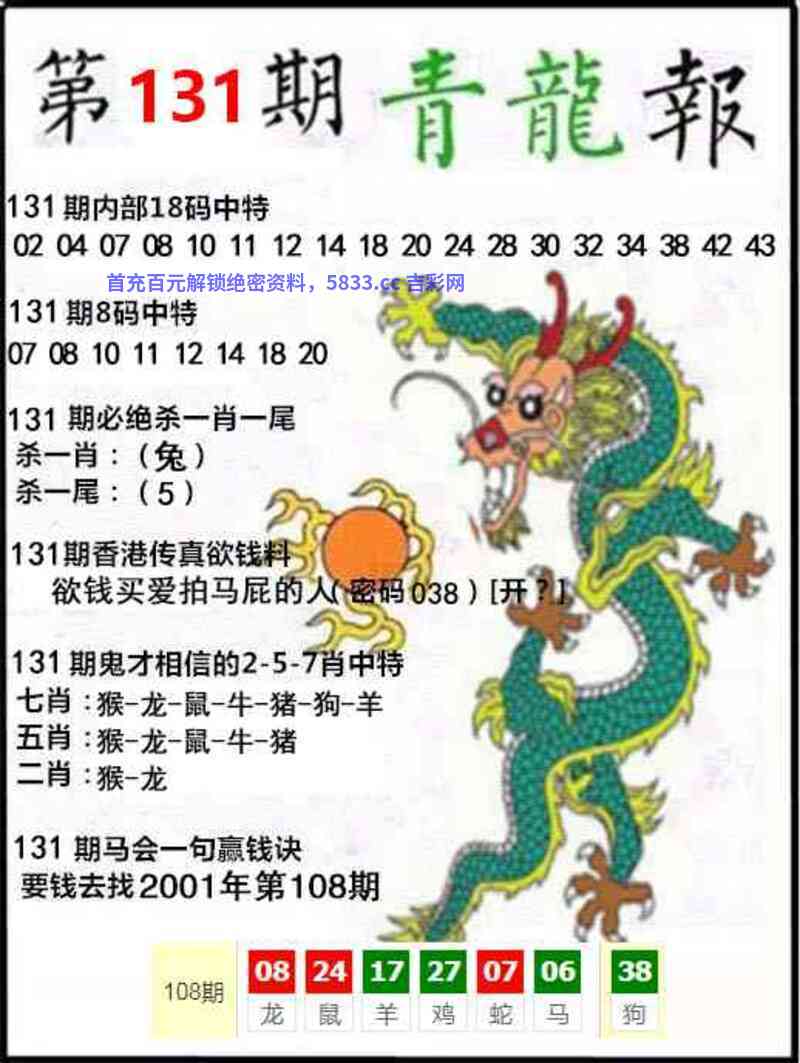 第131期青龍報
131期内部18码中特
02 04 07 08 10 11 12 14 18 20 24 28 30 32 34 38 42 43
首充百元解锁绝密资料，5833.cc 吉彩网
131期8码中特
07 08 10 11 12 14 18 20
131期必绝杀一肖一尾
杀一肖：（兔）
杀一尾：（5）
131期香港传真欲钱料
欲钱买爱拍马屁的人(密码038)[开？]
131期鬼才相信的2-5-7肖中特
七肖：猴-龙-鼠-牛-猪-狗-羊
五肖：猴-龙-鼠-牛-猪
二肖：猴-龙
131期马会一句赢钱诀
要钱去找2001年第108期
108期 08 24 17 27 07 06 38
龙 鼠 羊 鸡 蛇 马 狗